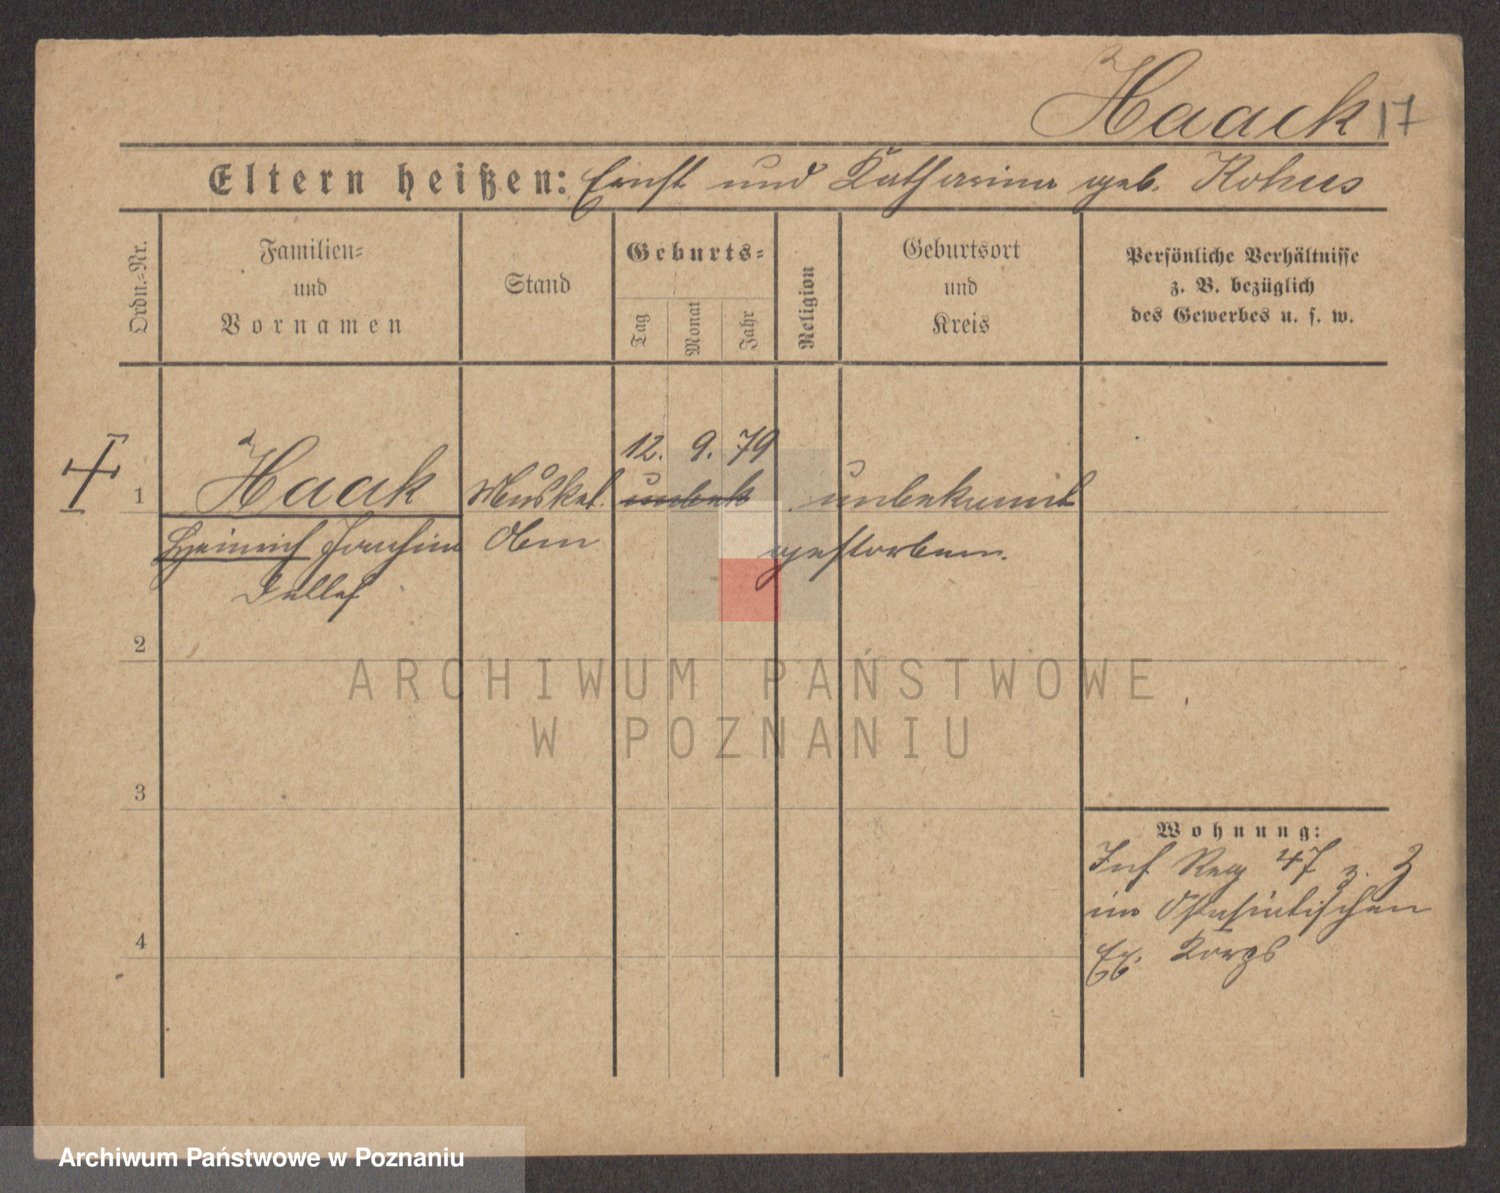 Haack 17
Eltern heißen: Ernst und Katharina geb. Kohus
Ordn.-Nr.
Familien-
und
Vornamen
Stand
Geburts-
Tag
Monat
Jahr
Religion
Geburtsort
und
Kreis
Persönliche Verhältnisse
z. B. bezüglich
des Gewerbes u. s. w.
12. 9. 79
1 Haak Musket. unbek unbekannt
Heinrich Joachim gestorben.
Detlef
2
ARCHIWUM PAŃSTWOWE
W POZNANIU
3
Wohnung:
Inf Reg 47 z. Z
im Ostasiatischen
4
Ex. Korps
Archiwum Państwowe w Poznaniu